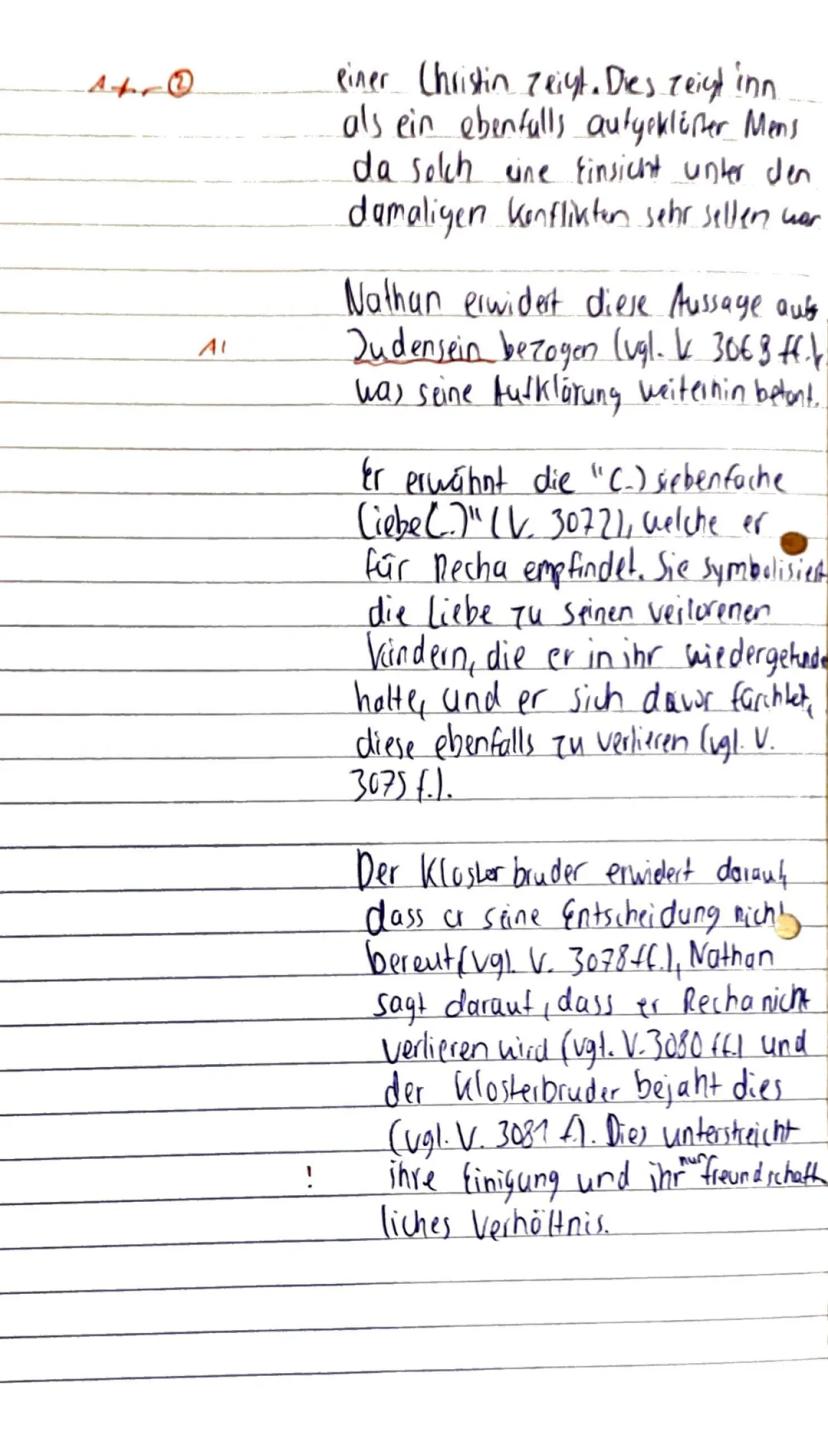 einer Christin zeigt. Dies zeigt inn
als ein ebenfalls aufgeklärter Mens
da solch eine Einsicht unter den
damaligen Konflikten sehr selten war
Nathan erwidert diese Aussage aufs
A1 Judensein bezogen (vgl. V. 3069 ff.),
was seine Aufklärung weiterhin betont.
Er erwähnt die "(..) siebenfache
Liebe(..)" (V. 3072), welche er
für Recha empfindet. Sie symbolisiert
die Liebe zu seinen verlorenen
Kindern, die er in ihr wiedergefunde
hatte, und er sich davor fürchtet,
diese ebenfalls zu verlieren (vgl. V.
3075 f.).
Der Klosterbruder erwidert darauf,
dass er seine Entscheidung nicht
bereut (vgl. V. 3078 ff.), Nathan
sagt darauf, dass er Recha nicht
verlieren wird (vgl. V. 3080 ff.) und
der Klosterbruder bejaht dies
(vgl. V. 3081 f.). Dies unterstreicht
! ihre Einigung und ihr nun freundschaft
liches Verhältnis.